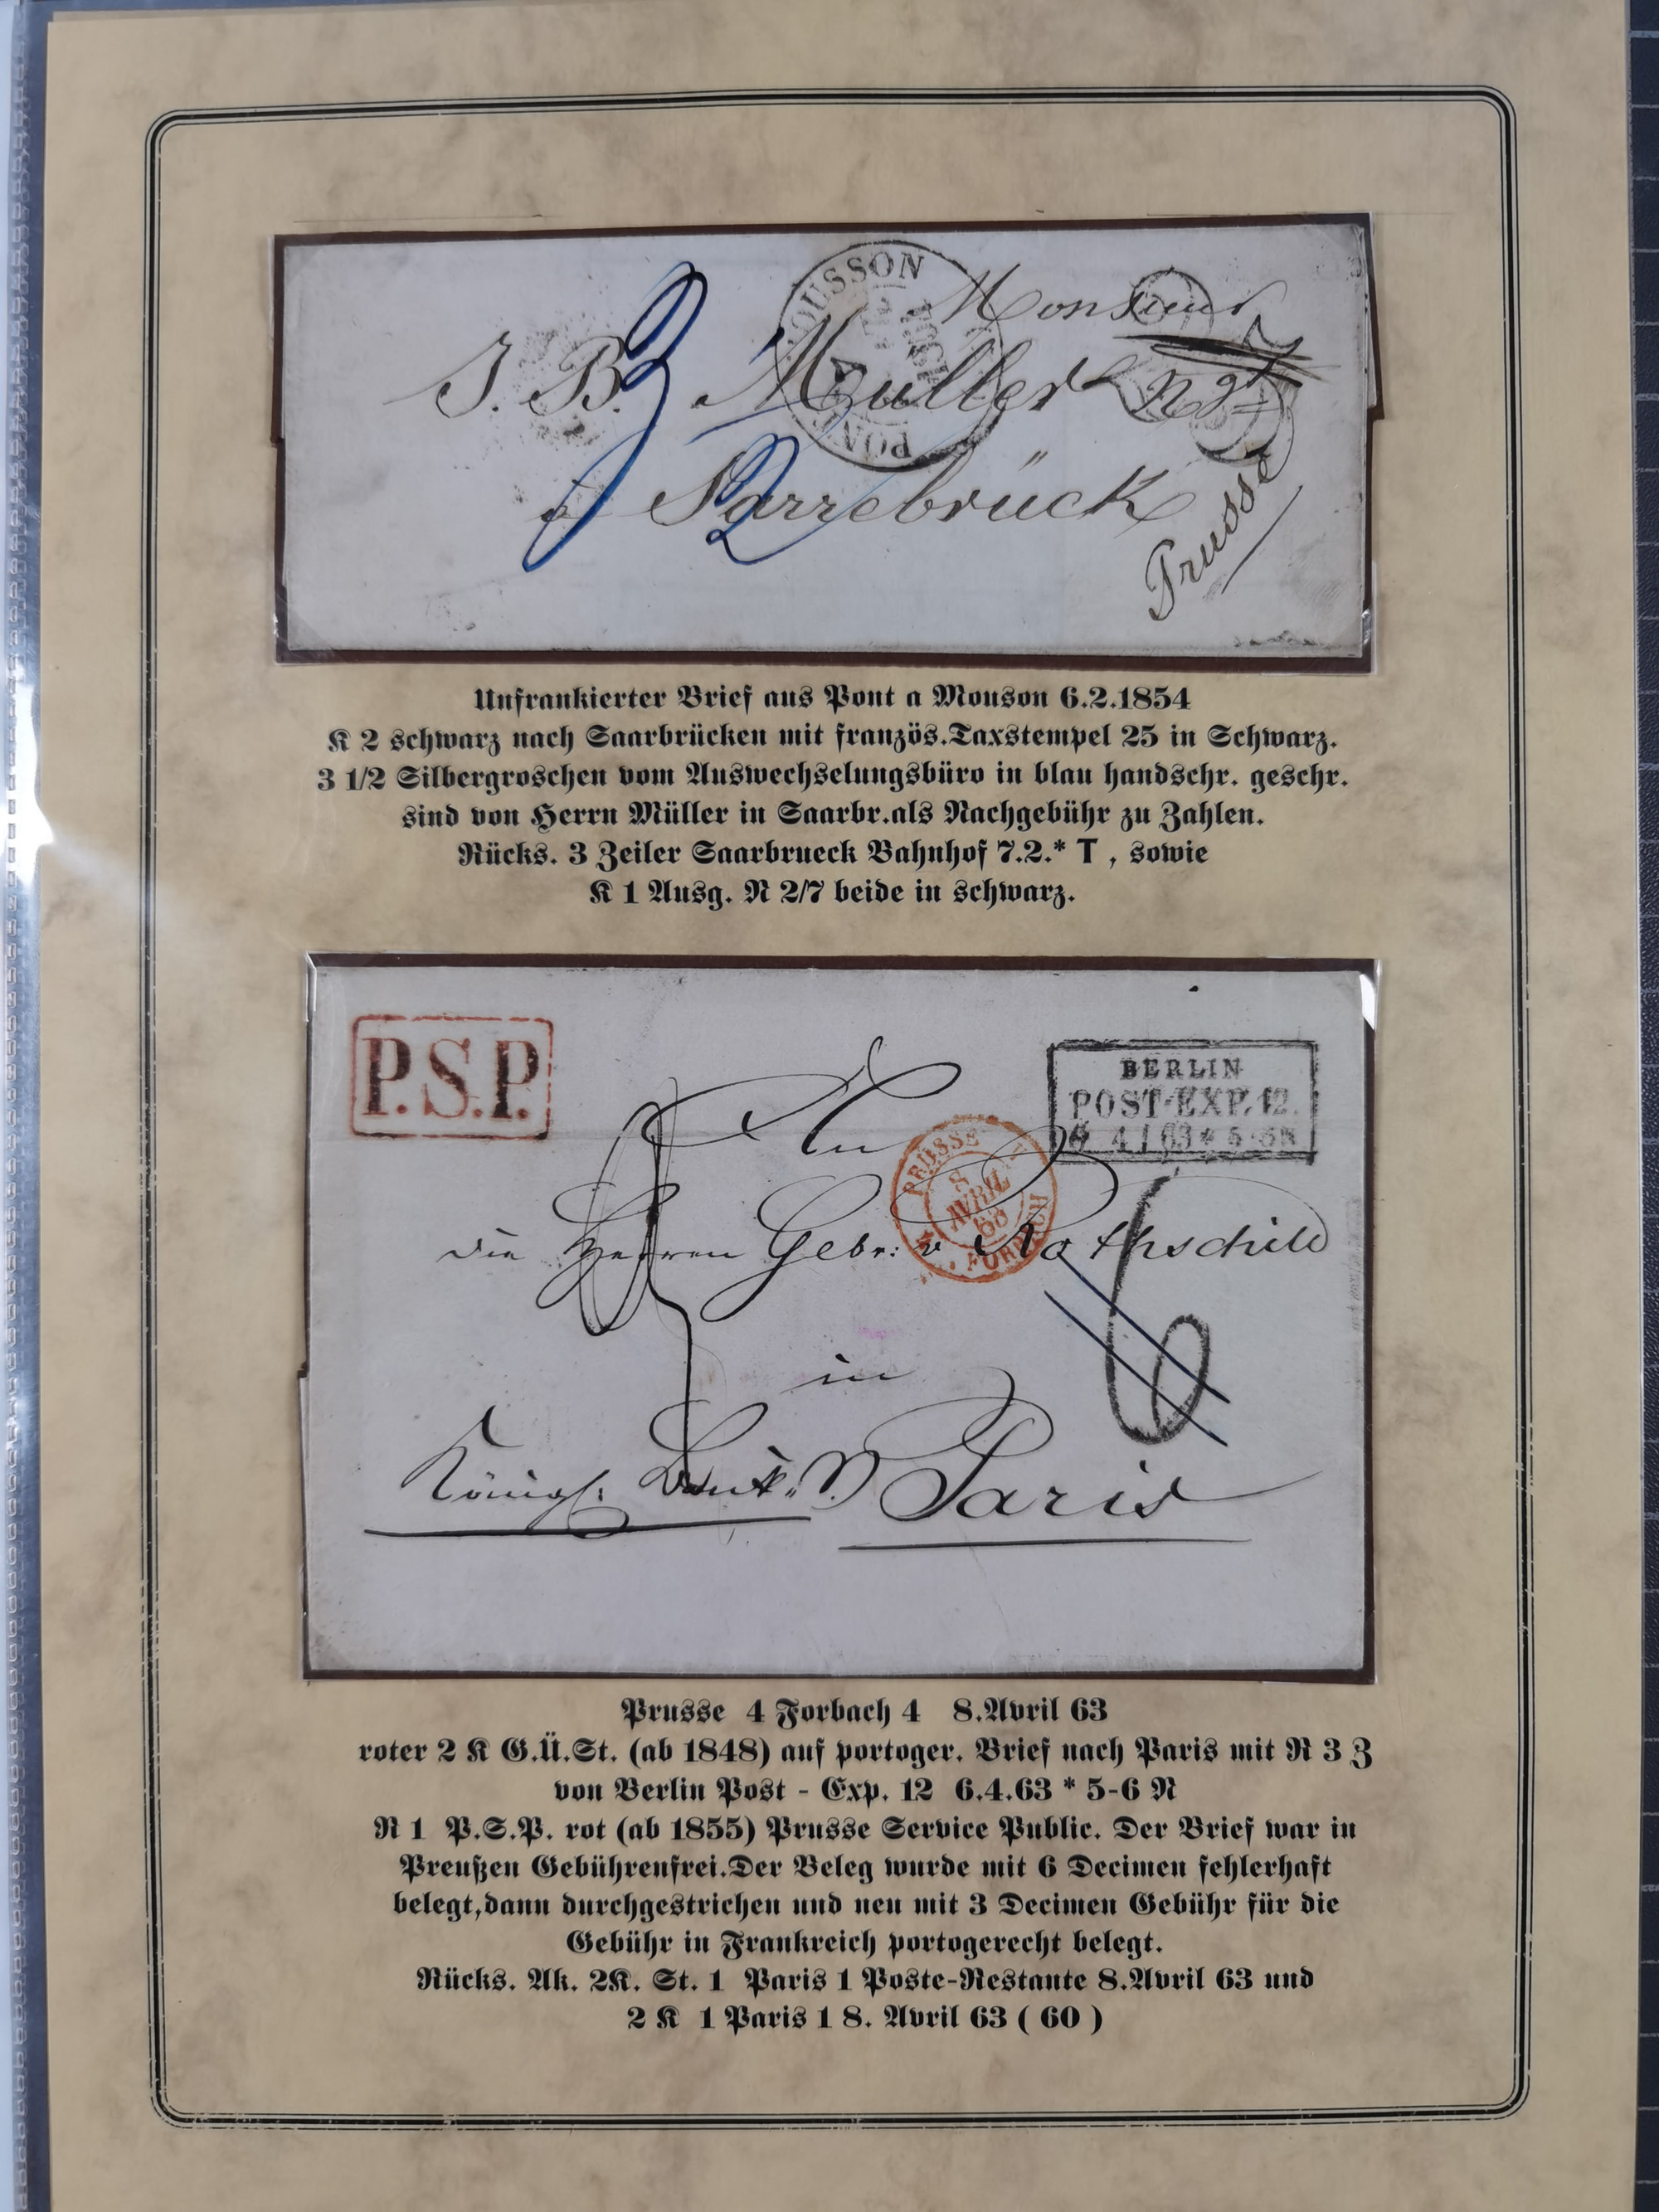 OUSSON
PONT
Monsieur
J. B. Müller ngt
à Sarrebrück
Prusse
3
2
Unfrankierter Brief aus Pont a Mouson 6.2.1854
K 2 schwarz nach Saarbrücken mit französ.Taxstempel 25 in Schwarz.
3 1/2 Silbergroschen vom Auswechselungsbüro in blau handschr. geschr.
sind von Herrn Müller in Saarbr.als Nachgebühr zu Zahlen.
Rücks. 3 Zeiler Saarbrueck Bahnhof 7.2.* T , sowie
K 1 Ausg. N 2/7 beide in schwarz.
P.S.P.
BERLIN
POST-EXP. 12.
4 63 * 5-6 N
An
PRUSSE
8
AVRIL
63
FORBACH
die Herren Gebr: v Rothschild
6
in
Königl. Bank. Paris
Prusse 4 Forbach 4 8.Avril 63
roter 2 K G.Ü.St. (ab 1848) auf portoger. Brief nach Paris mit R 3 Z
von Berlin Post - Exp. 12 6.4.63 * 5-6 N
R 1 P.S.P. rot (ab 1855) Prusse Service Public. Der Brief war in
Preußen Gebührenfrei.Der Beleg wurde mit 6 Decimen fehlerhaft
belegt,dann durchgestrichen und neu mit 3 Decimen Gebühr für die
Gebühr in Frankreich portogerecht belegt.
Rücks. Ak. 2K. St. 1 Paris 1 Poste-Restante 8.Avril 63 und
2 K 1 Paris 1 8. Avril 63 ( 60 )